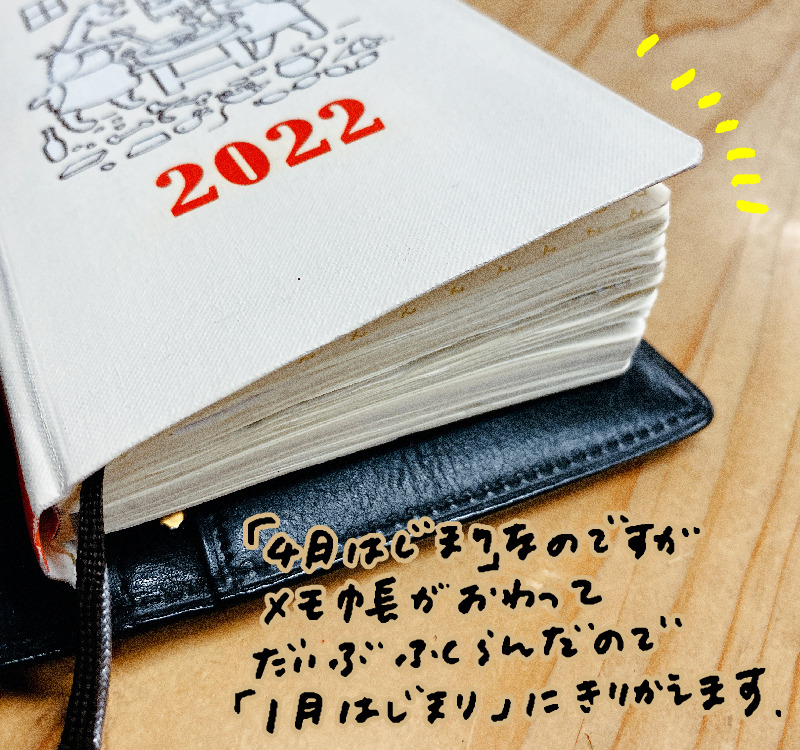 2022
「4月はじまり」なのですが
メモ帳がおわって
だいぶふくらんだので
「1月はじまり」にきりかえます.